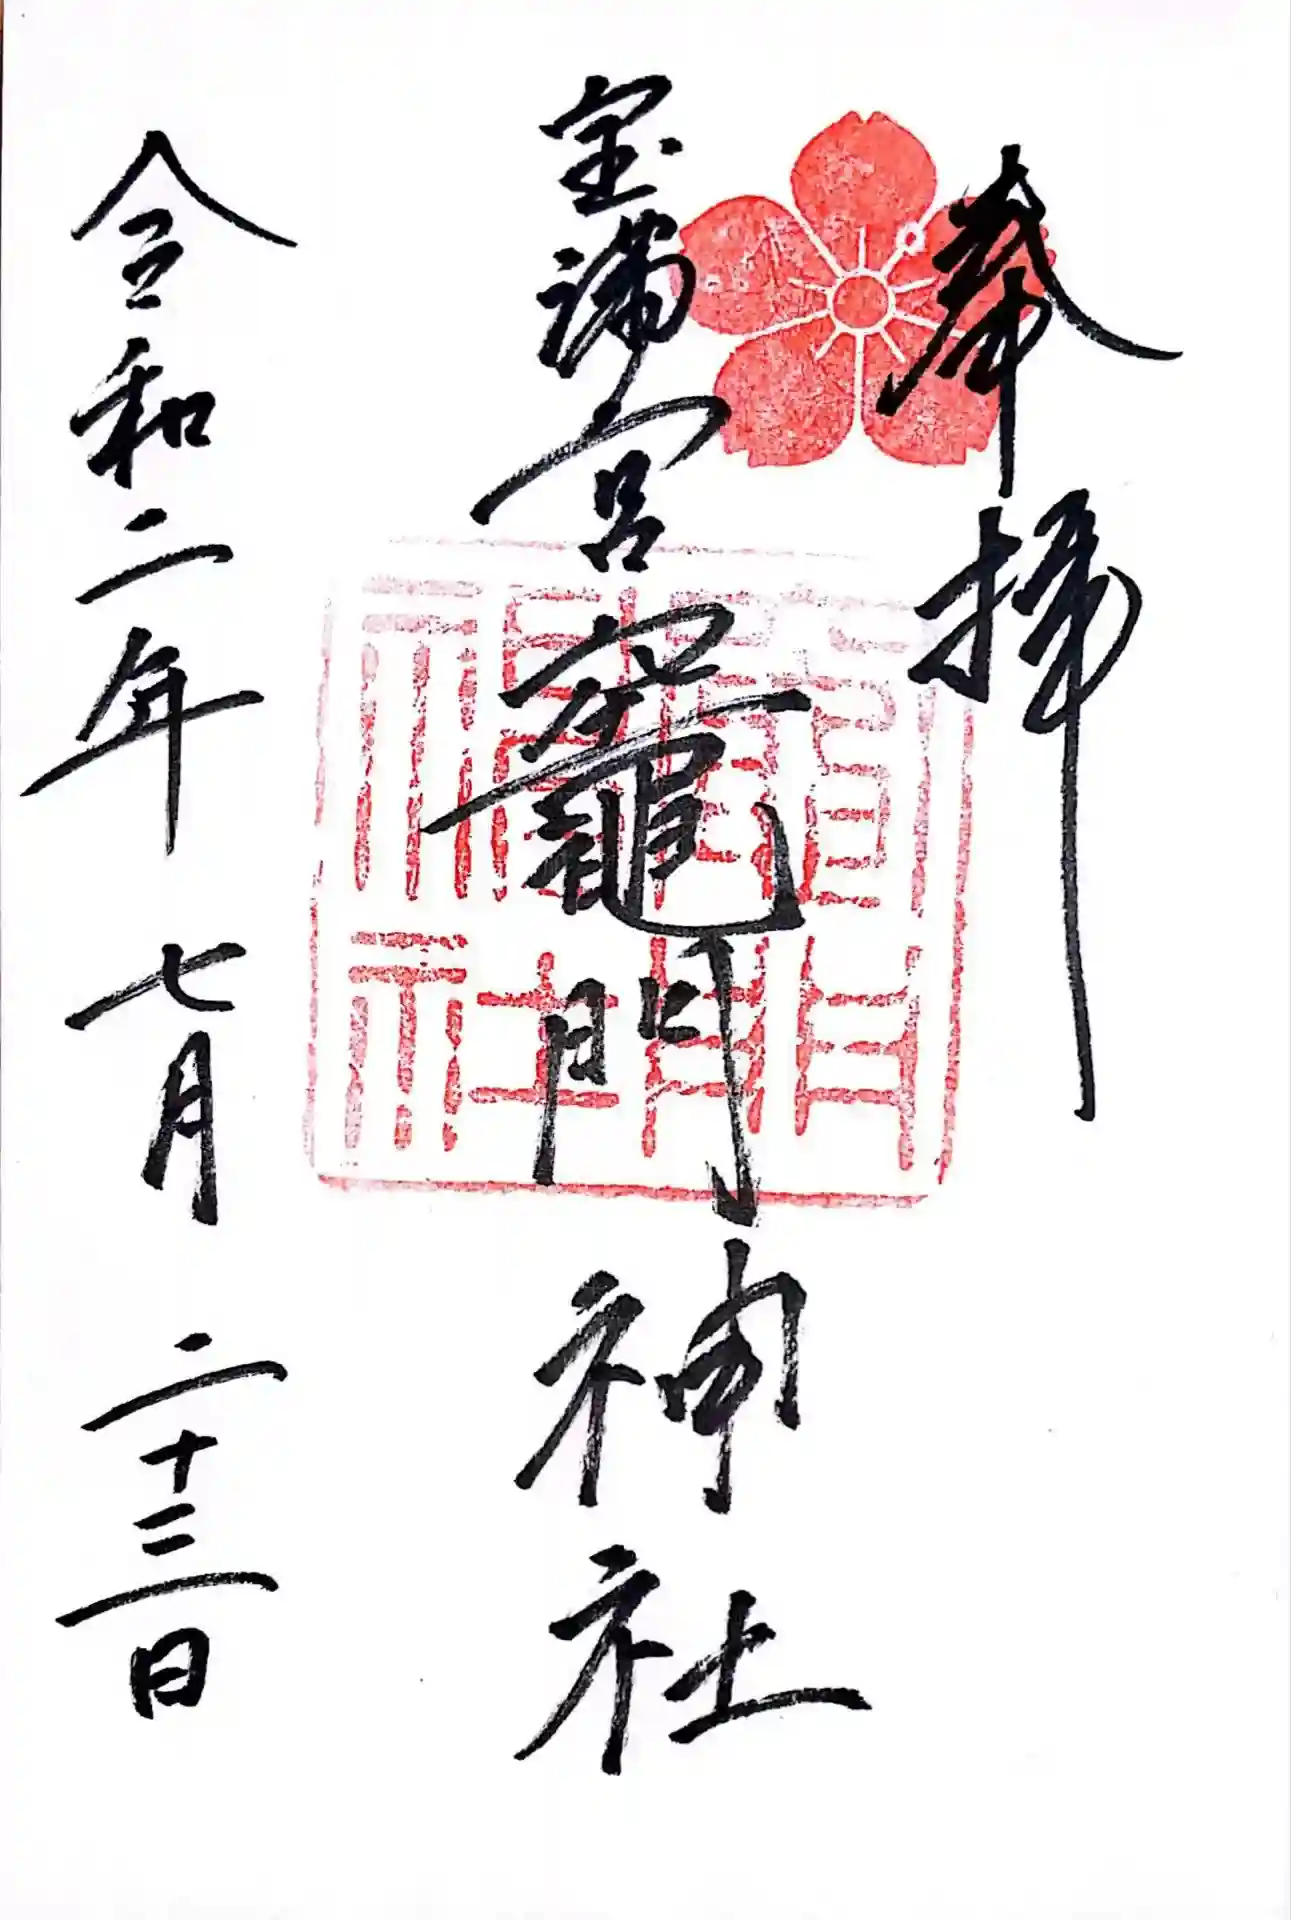 奉拝
宝満宮竈門神社
令和二年七月二十三日